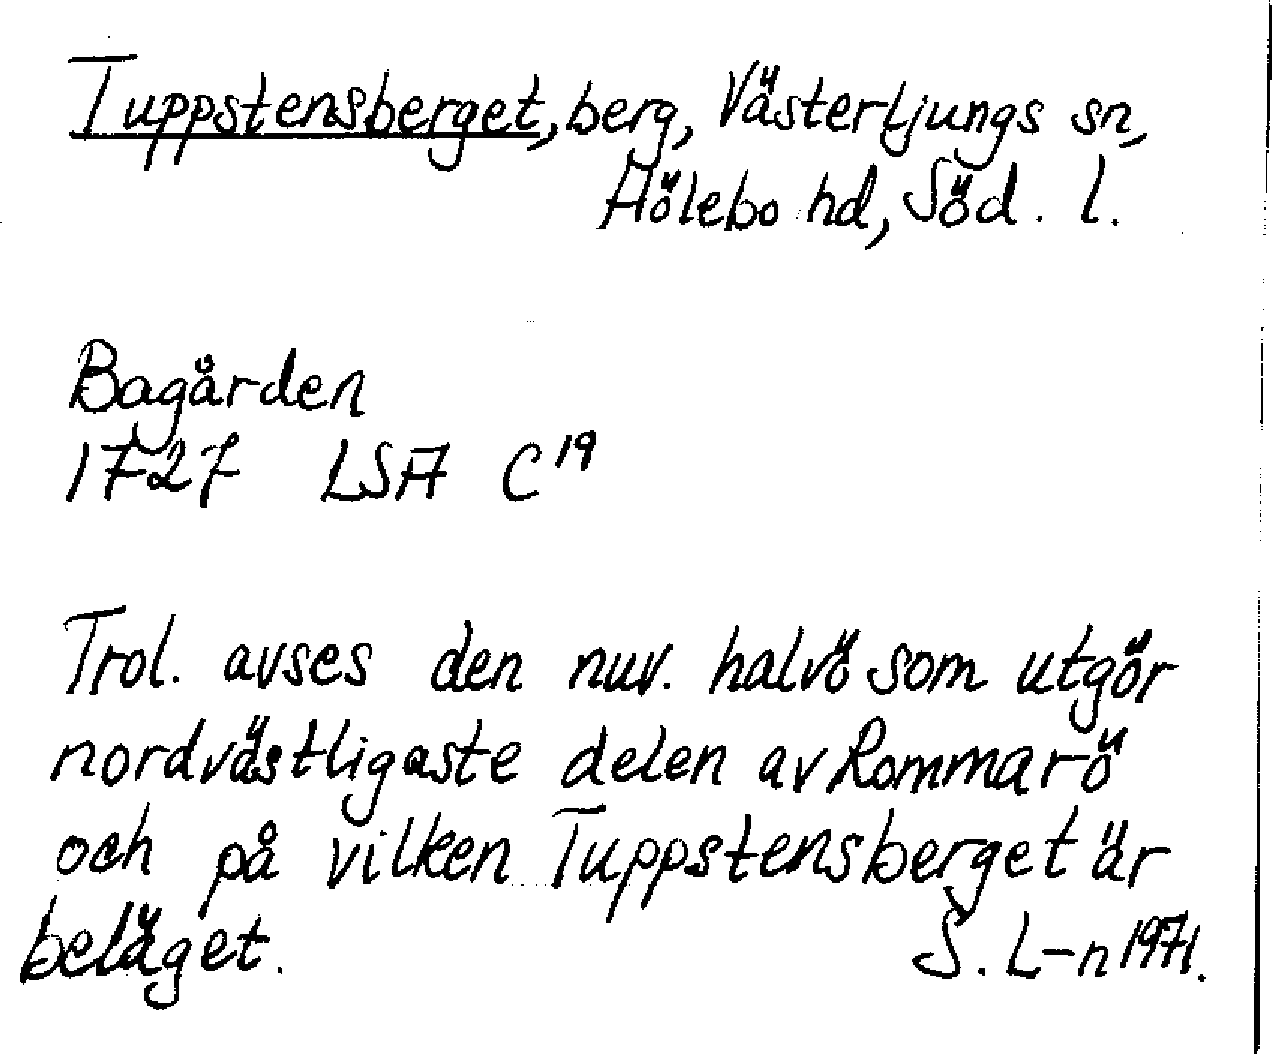 Tuppstensberget, berg, Västerljungs sn,
Hölebo hd, Söd. l.
Bagården
1727 LSA C19
Trol. avses den nuv. halvö som utgör
nordvästligaste delen av Rommarö
och på vilken Tuppstensberget är
beläget.
S. L-n 1971.